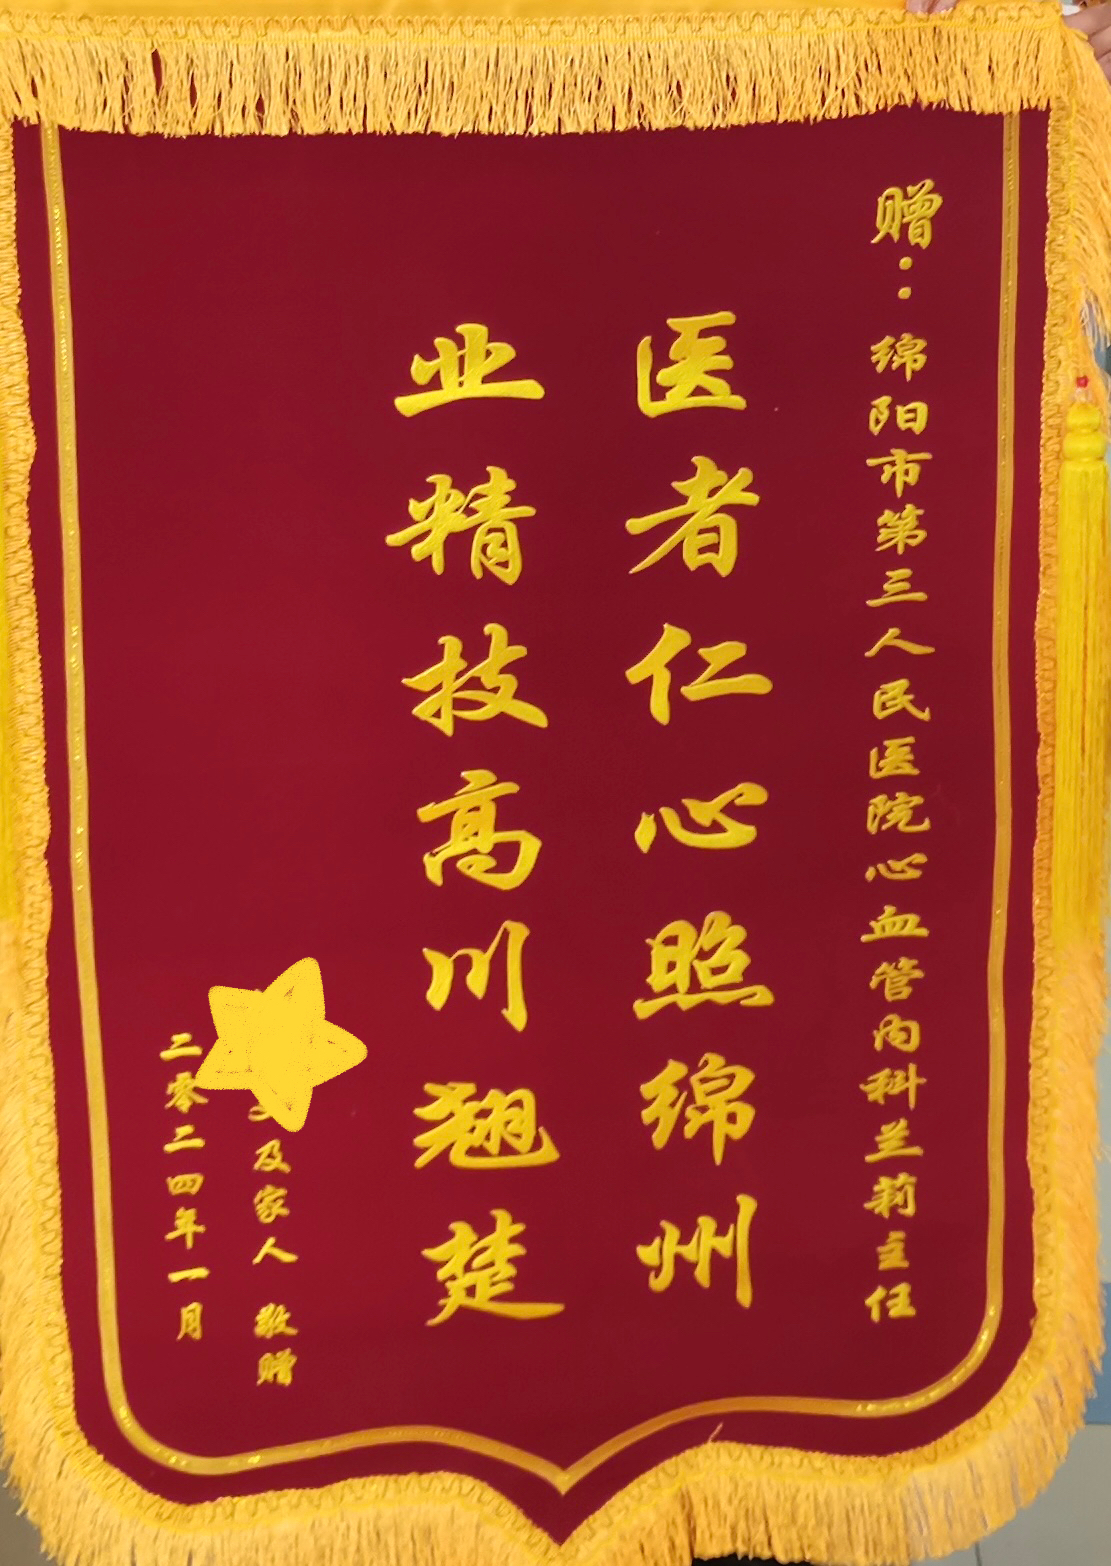 赠：绵阳市第三人民医院心血管内科兰莉主任
医者仁心照绵州
业精技高川翘楚
及家人 敬赠
二零二四年一月